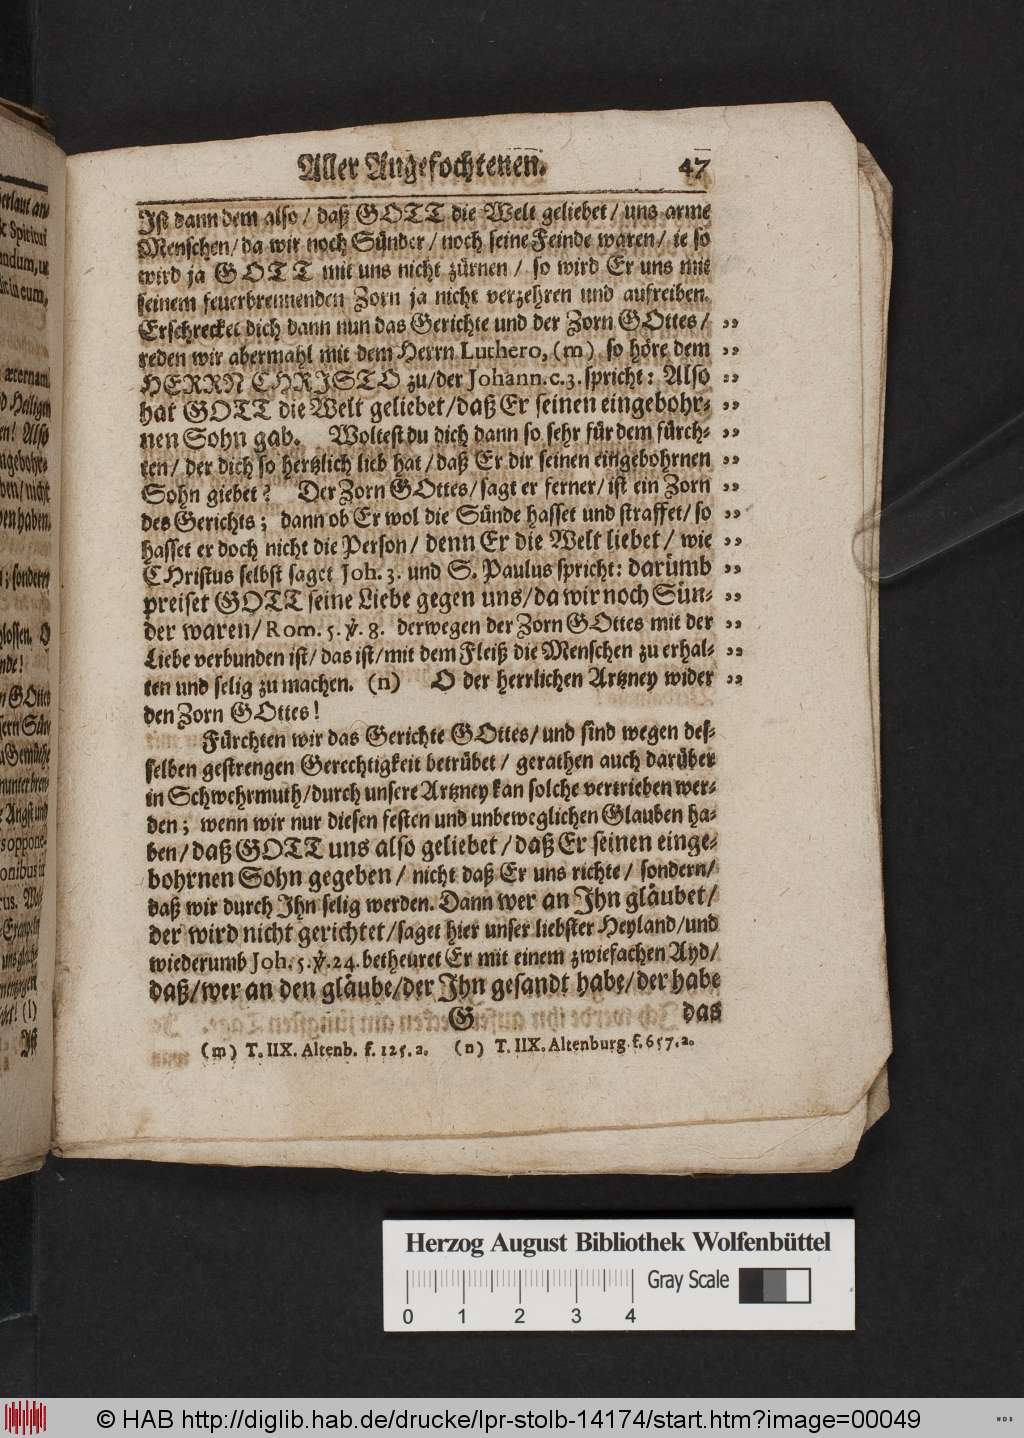 Aller Angefochtenen. 47
Ist dann dem also / daß GOTT die Welt geliebet / uns arme
Menschen / da wir noch Sünder / noch seine Feinde waren / ie so
wird ja GOTT mit uns nicht zürnen / so wird Er uns mit
seinem feuerbrennenden Zorn ja nicht verzehren und aufreiben.
Erschrecket dich dann nun das Gerichte und der Zorn GOttes / „
reden wir abermahl mit dem Herrn Luthero, (m) so höre dem „
HERRN CHRISTO zu / der Johann. c. 3. spricht: Also „
hat GOTT die Welt geliebet / daß Er seinen eingebohr- „
nen Sohn gab. Woltest du dich dann so sehr für dem fürch- „
ten / der dich so hertzlich lieb hat / daß Er dir seinen eingebohrnen „
Sohn giebet? Der Zorn GOttes / sagt er ferner / ist ein Zorn „
des Gerichts; dann ob Er wol die Sünde hasset und straffet / so „
hasset er doch nicht die Person / denn Er die Welt liebet / wie „
CHristus selbst saget Joh. 3. und S. Paulus spricht: darümb „
preiset GOTT seine Liebe gegen uns / da wir noch Sün- „
der waren / Rom. 5. ℣. 8. derwegen der Zorn GOttes mit der „
Liebe verbunden ist / das ist / mit dem Fleiß die Menschen zu erhal- „
ten und selig zu machen. (n) O der herrlichen Artzney wider „
den Zorn GOttes!
Fürchten wir das Gerichte GOttes / und sind wegen des-
selben gestrengen Gerechtigkeit betrübet / gerathen auch darüber
in Schwehrmuth / durch unsere Artzney kan solche vertrieben wer-
den; wenn wir nur diesen festen und unbeweglichen Glauben ha-
ben / daß GOTT uns also geliebet / daß Er seinen einge-
bohrnen Sohn gegeben / nicht daß Er uns richte / sondern /
daß wir durch Ihn selig werden. Dann wer an Ihn gläubet /
der wird nicht gerichtet / saget hier unser liebster Heyland / und
wiederumb Joh. 5. ℣. 24. betheuret Er mit einem zwiefachen Ayd /
daß / wer an den gläube / der Ihn gesandt habe / der habe
G das
(m) T. IIX. Altenb. f. 125. a. (n) T. IIX. Altenburg. f. 657. a.
Herzog August Bibliothek Wolfenbüttel
Gray Scale
0 1 2 3 4
© HAB http://diglib.hab.de/drucke/lpr-stolb-14174/start.htm?image=00049